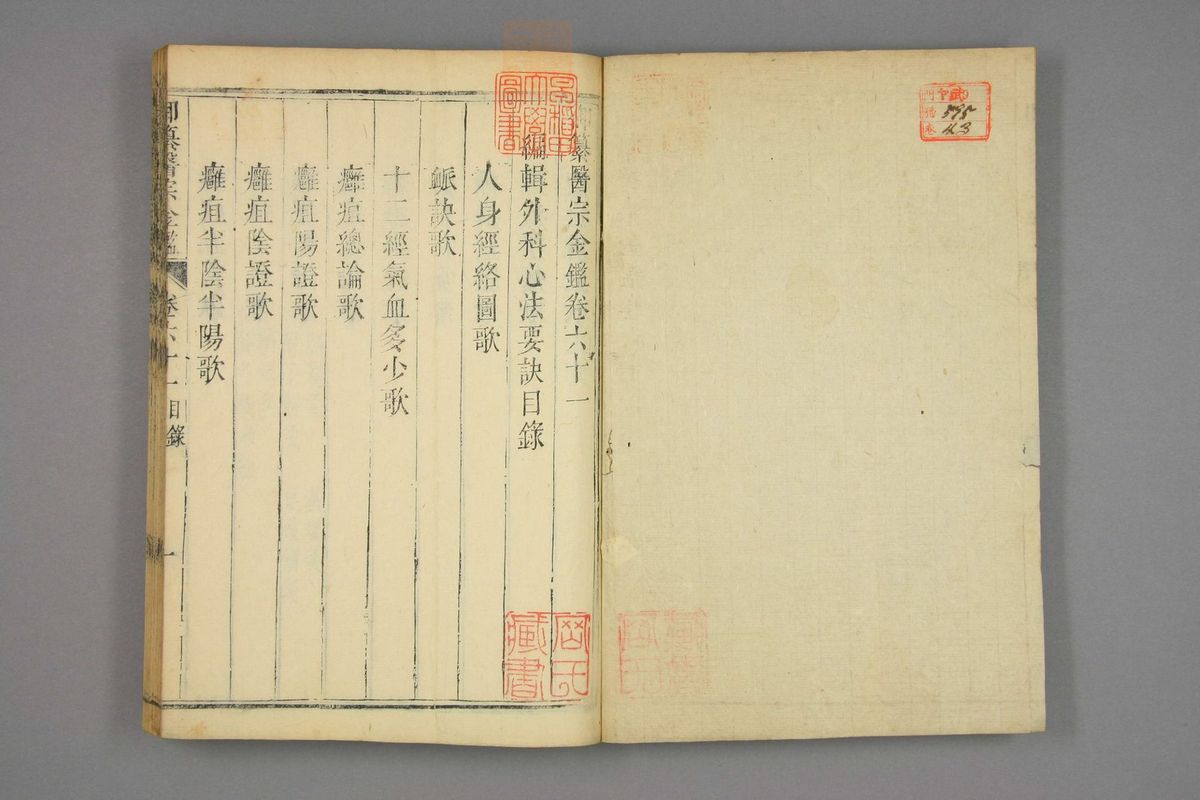 御纂醫宗金鑑卷六十一
編輯外科心法要訣目錄
人身經絡圖歌
脈訣歌
十二經氣血多少歌
癰疽總論歌
癰疽陽證歌
癰疽陰證歌
癰疽半陰半陽歌
御纂醫宗金鑑
卷六十一目錄
一
早稻田
大學
圖書
藏書
595
43